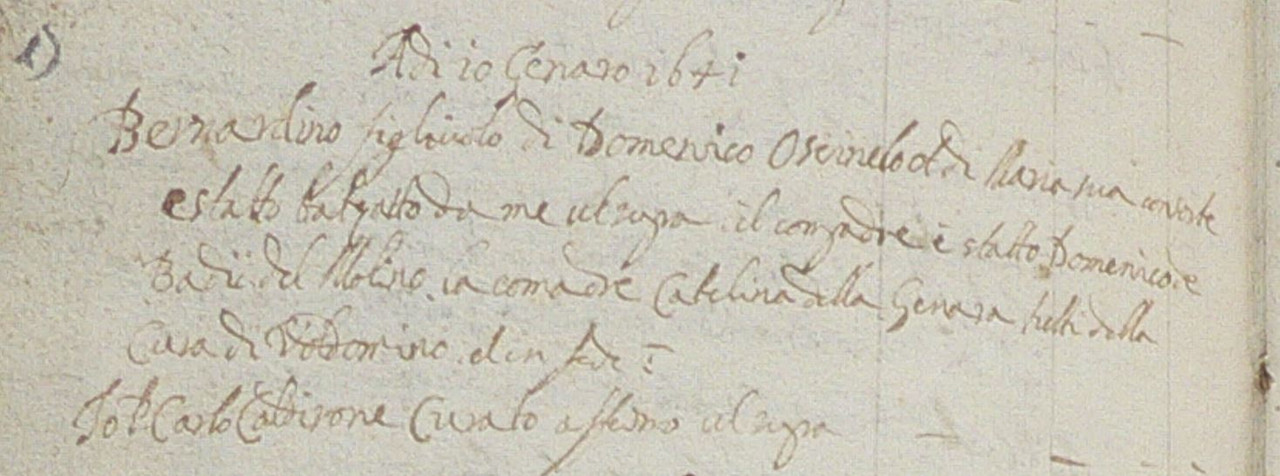 1)
Adi 10 Genaro 1641
Bernardino figliuolo di Domenico Oscinelo et di Maria sua consorte
e statto batzatto da me ut supra il compadre è statto Domenico de
Badii del Molino. la comadre Catelina della Genara tutti della
Cura di Vodomino. et in fede
Io P. Carlo Curato affermo ut supra